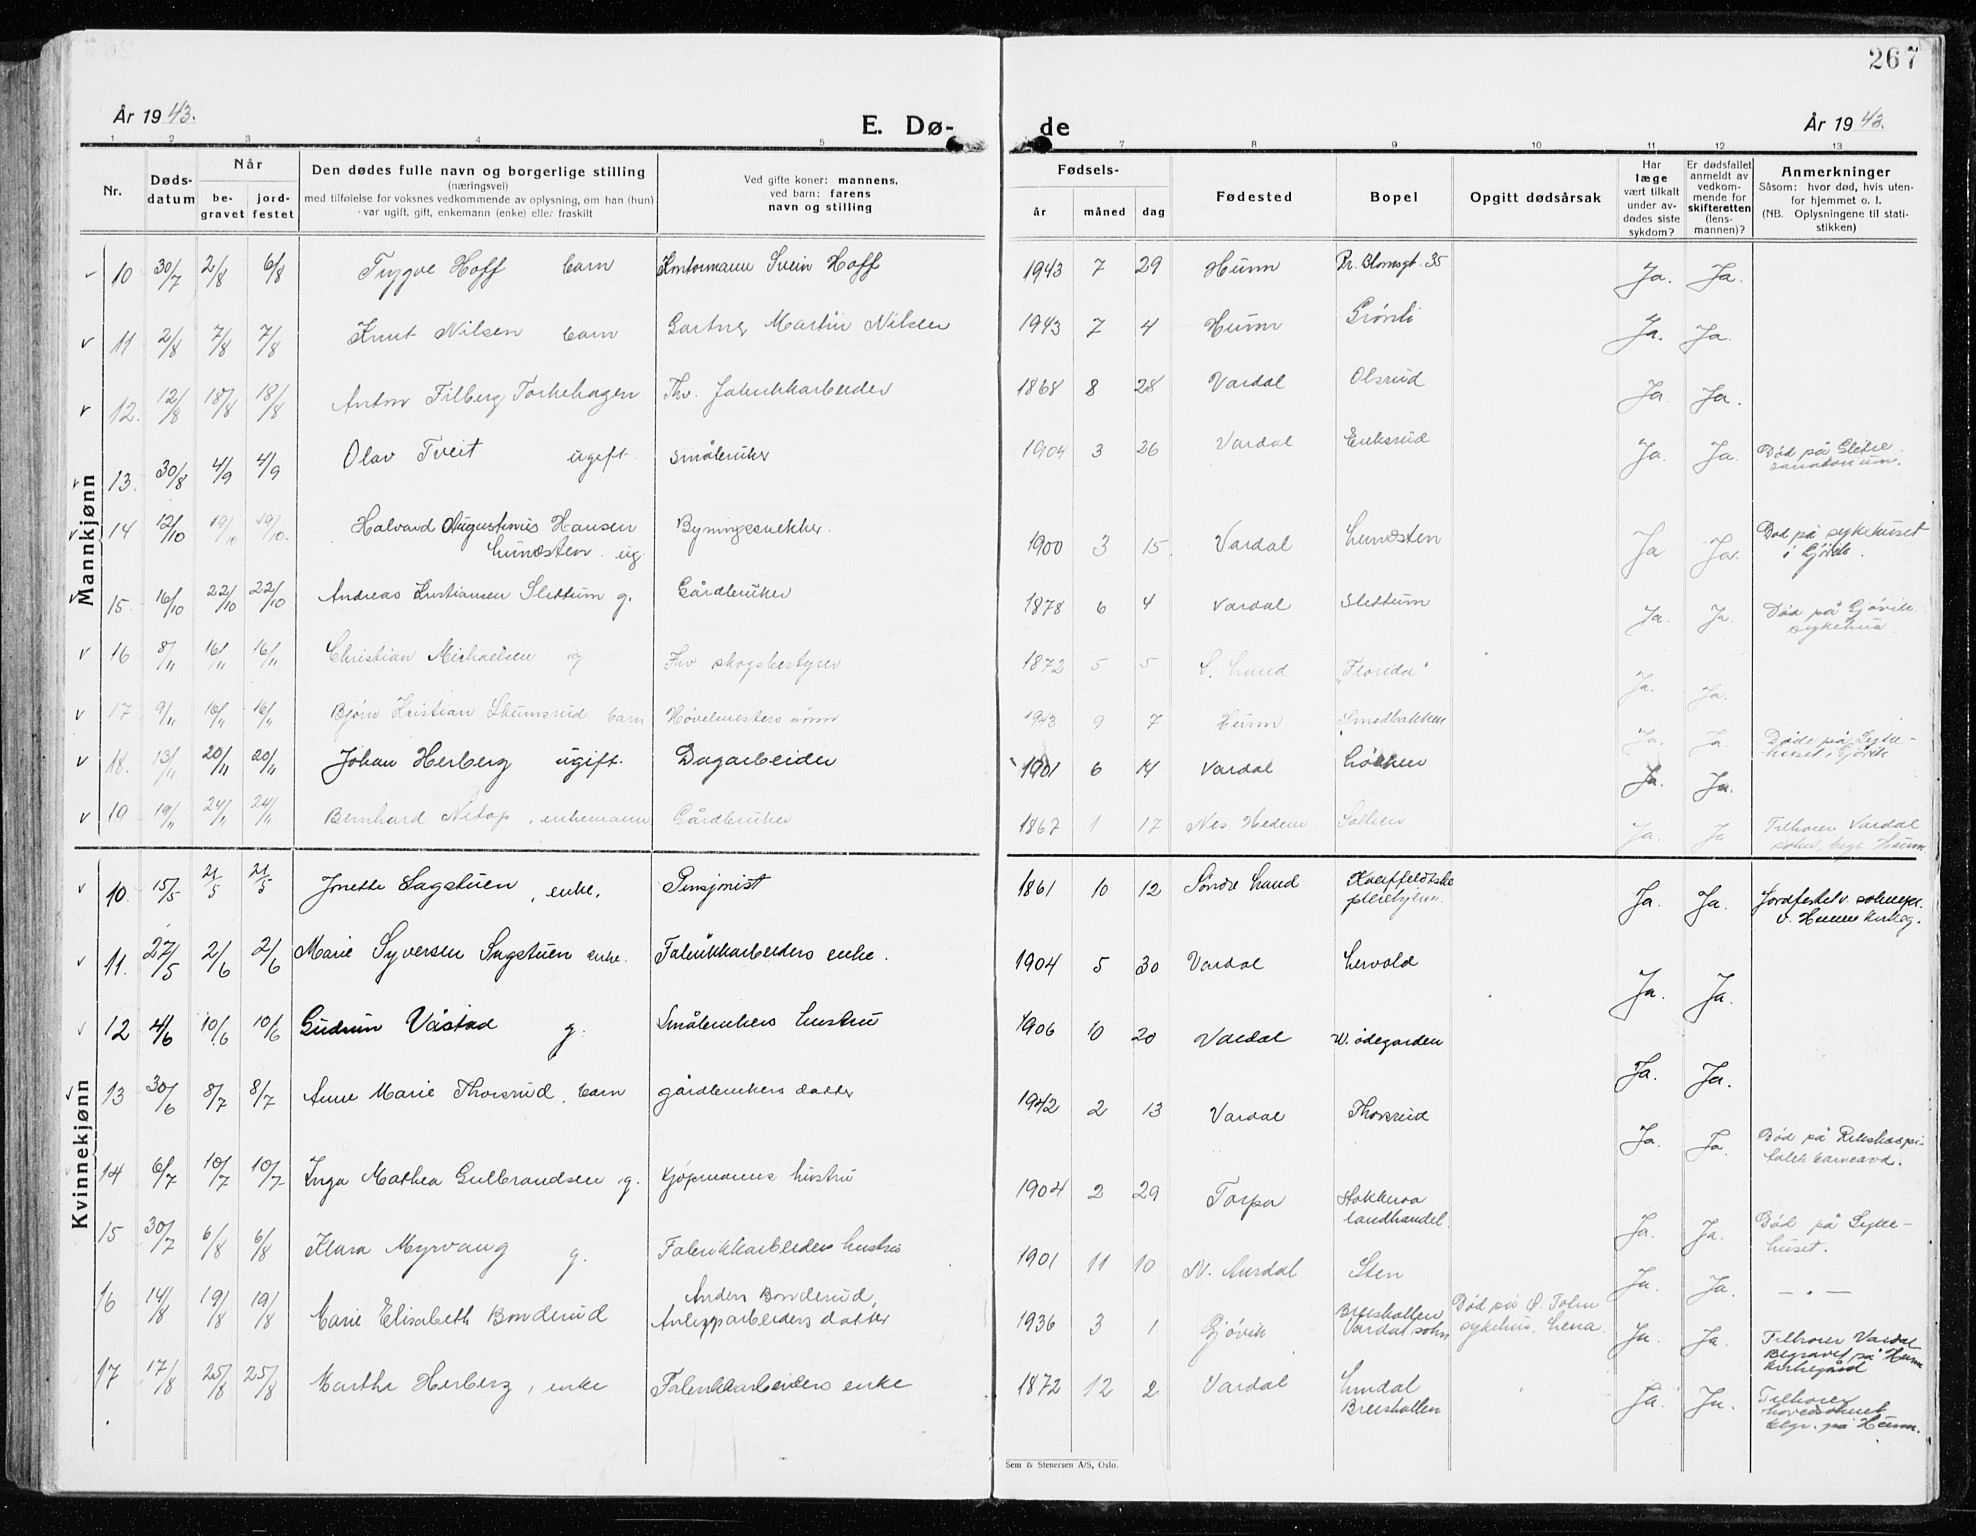 267
År 1943.
E. Dø-
de
År 1943.
1 2 3 4 5 7 8 9 10 11 12 13
Nr.
Døds-
datum
Når
be-
gravet
jord-
festet
Den dødes fulle navn og borgerlige stilling
(næringsvei)
med tilføielse for voksnes vedkommende av oplysning, om han (hun)
var ugift, gift, enkemann (enke) eller fraskilt
Ved gifte koner: mannens,
ved barn: farens
navn og stilling
Fødsels-
år
måned
dag
Fødested
Bopel
Opgitt dødsårsak
Har
læge
vært tilkalt
under av-
dødes siste
sykdom?
Er dødsfallet
anmeldt av
vedkom-
mende for
skifteretten
(lens-
mannen)?
Anmerkninger
Såsom: hvor død, hvis uten-
for hjemmet o. l.
(NB. Oplysningene til stati-
stikken)
Mannkjønn
v 10 30/7 2/8 6/8 Trygve Hoff barn Kontormann Svein Hoff 1943 7 29 Hunn Pr. Blomsgt. 35 Ja. Ja.
v 11 2/8 7/8 7/8 Knut Nilsen barn Gartner Martin Nilsen 1943 7 4 Hunn Grønli Ja. Ja.
v 12. 12/8 18/8 18/8 Anton Filberg Torkehagen Fhv. Fabrikkarbeider 1868 8 28 Vardal Olsrud Ja. Ja.
v 13. 30/8 4/9 4/9 Olav Tveit ugift. småbruker 1904 3 26 Vardal Eriksrud Ja. Ja. Død på
sanatorium.
v 14 12/10 19/10 19/10. Halvard Augustinus Hansen Bygningssnekker. 1900 3 15. Vardal Lundsten Ja Ja. Død på sykehuset
Lundsten. ug i Gjøvik.
v 15. 16/10 22/10 22/10 Andreas Kristiansen Slettum g. Gårdbruker 1878 6 4 Vardal Slettum Ja. Ja Død på Gjøvik
sykehus.
v 16 8/11 16/11 16/11 Christian Michaelsen g. Fhv. skogbestyrer 1872 5 5 S. Land "Florida" Ja. Ja.
v 17 9/11 16/11 16/11 Bjørn Kristian Skumsrud barn Høvelmesters sønn 1943 9 7 Hunn Smedbakken Ja. Ja. Døde på Syke-
huset i Gjøvik
v 18. 13/11 20/11 20/11 Johan Herberg ugift. Dagarbeider 1901 6 14 Vardal Løkken Ja. Ja.
v 19 19/11 24/11 24/11 Bernhard Netop, enkemann Gårdbruker 1867 1 17 Nes. Hedem Ja. Ja Tilhører Vardal
sokn, begr. Hunn
Kvinnekjønn
v 10. 15/5 21/5 21/5 Jonette Sagstuen, enke. Pensjonist 1861 10 12 Søndre Land Kauffeldtske Ja. Ja. Jordfestet v. sokneprs.
pleiehjem. v. Hunn kirkeg.
v 11. 27/5 2/6 2/6 Marie Syversen Sagstuen enke. Fabrikkarbeiders enke. 1904 5 30 Vardal Lervold Ja. Ja.
v 12 4/6 10/6 10/6 Gudrun Våstad g. Småbrukers hustru 1906 10 20 Vardal W. ødegarden Ja. Ja.
v 13 30/6 8/7 8/7 Anne Marie Thorsrud, barn gårdbrukers datter 1942 2 13 Vardal Thorsrud Ja. Ja. Død på Rikshospi-
talets barneavd.
14 6/7 10/7 10/7 Inga Mathea Gulbrandsen g. Kjøpmanns hustru 1904 2 29 Torpa Stokkeroa Ja. Ja. Død på Syke-
landhandel. huset.
15 30/7 6/8 6/8 Klara Myrvang g. Fabrikkarbeiders hustru 1901 11 10 N. Aurdal Sten Ja. Ja. — „ —
16 14/8 19/8 19/8 Marie Elisabeth Bonderud Anders Bonderud, 1936 3 1 Gjøvik Breiskallen Død på Ø. Toten Ja. Ja. Tilhører Vardal
Anleggsarbeiders datter Vardal sokn sykehus, Lena. Begravet på Hunn
kirkegård
17 17/8 25/8 25/8 Marthe Herberg, enke Fabrikkarbeiders enke 1872 12 2 Vardal Lundal Ja. Ja. Tilhører
Breiskallen hovedsoknet
begr. på Hunn.
Sem & Stenersen A/S, Oslo.